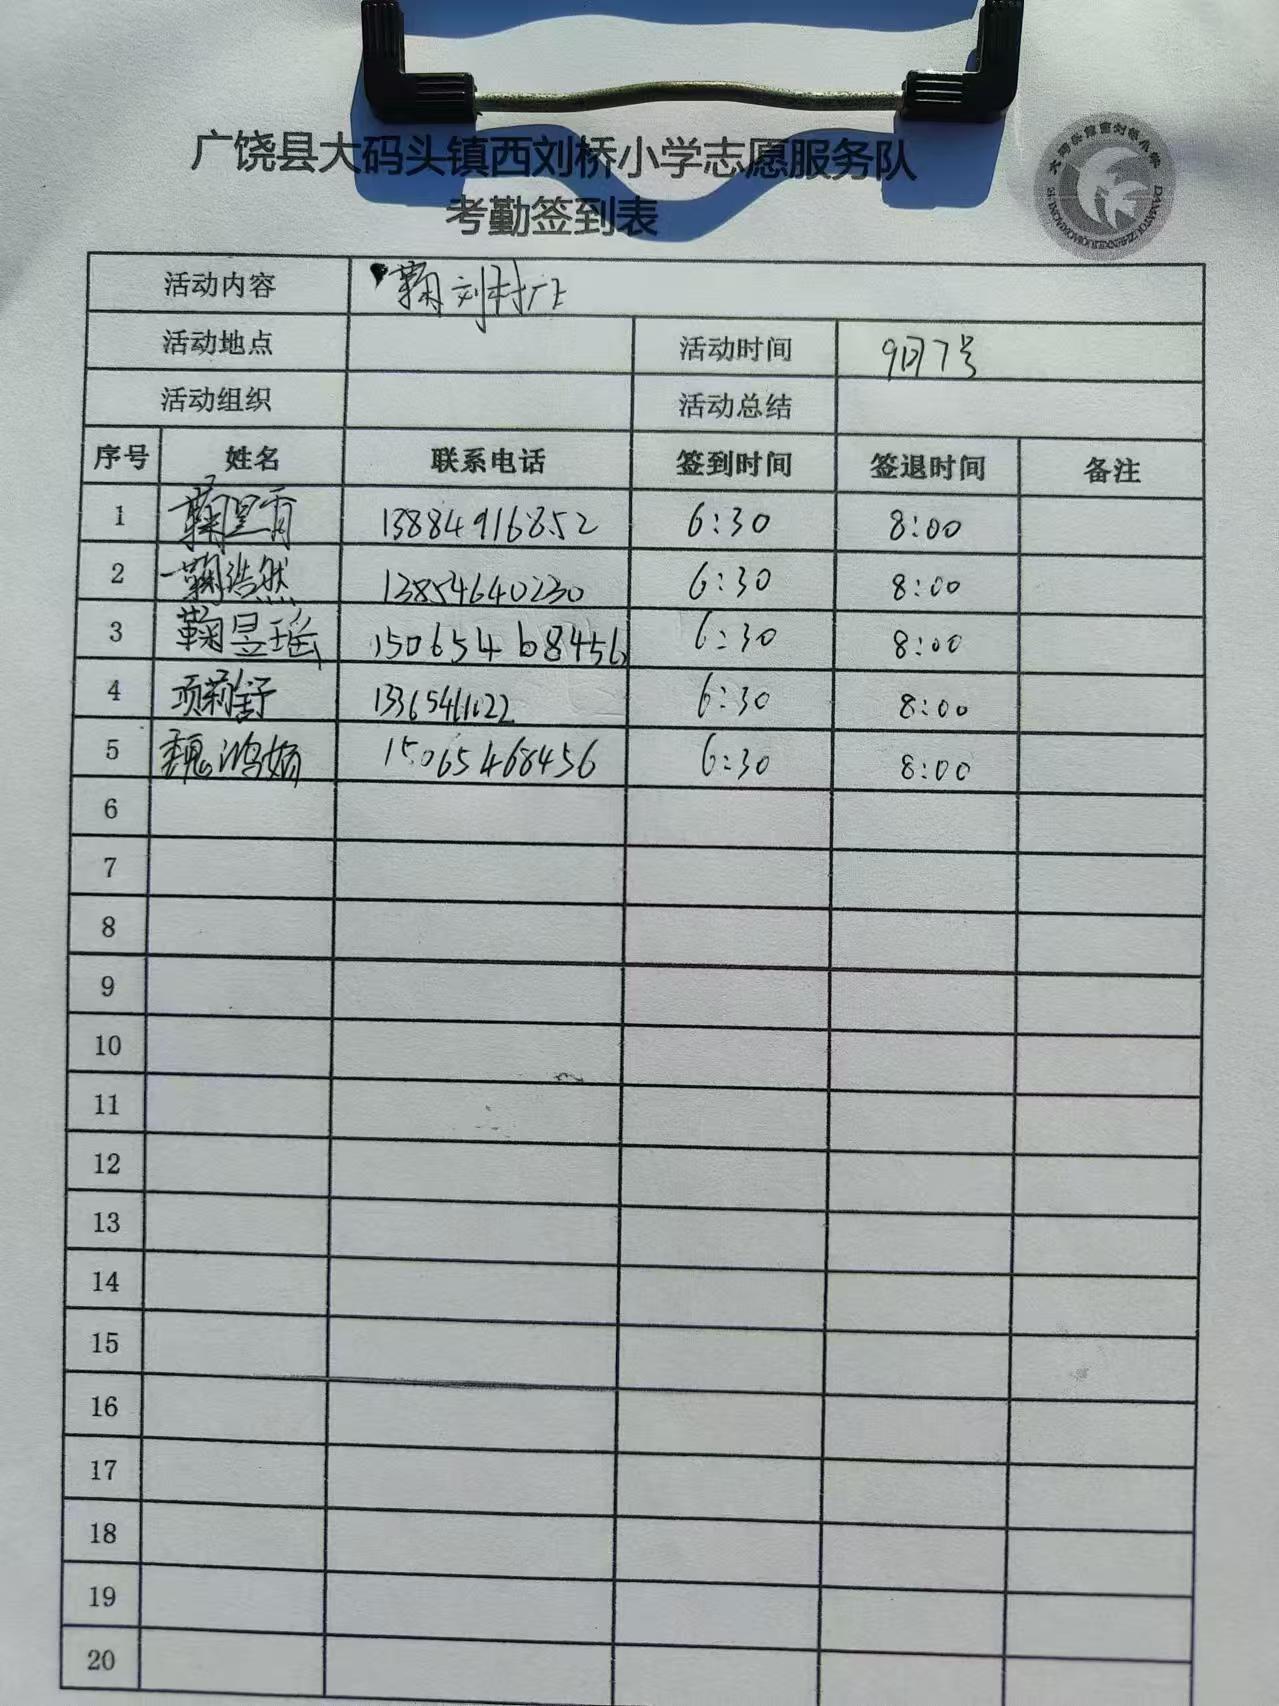 广饶县大码头镇西刘桥小学志愿服务队
考勤签到表
活动内容 鞠刘村广上
活动地点 活动时间 9月7号
活动组织 活动总结
序号 姓名 联系电话 签到时间 签退时间 备注
1 鞠昱霄 13884916852 6:30 8:00
2 鞠浩然 13854640230 6:30 8:00
3 鞠昱瑶 15065468456 6:30 8:00
4 项莉舒 13365461122 6:30 8:00
5 魏鸿娇 15065468456 6:30 8:00
6
7
8
9
10
11
12
13
14
15
16
17
18
19
20